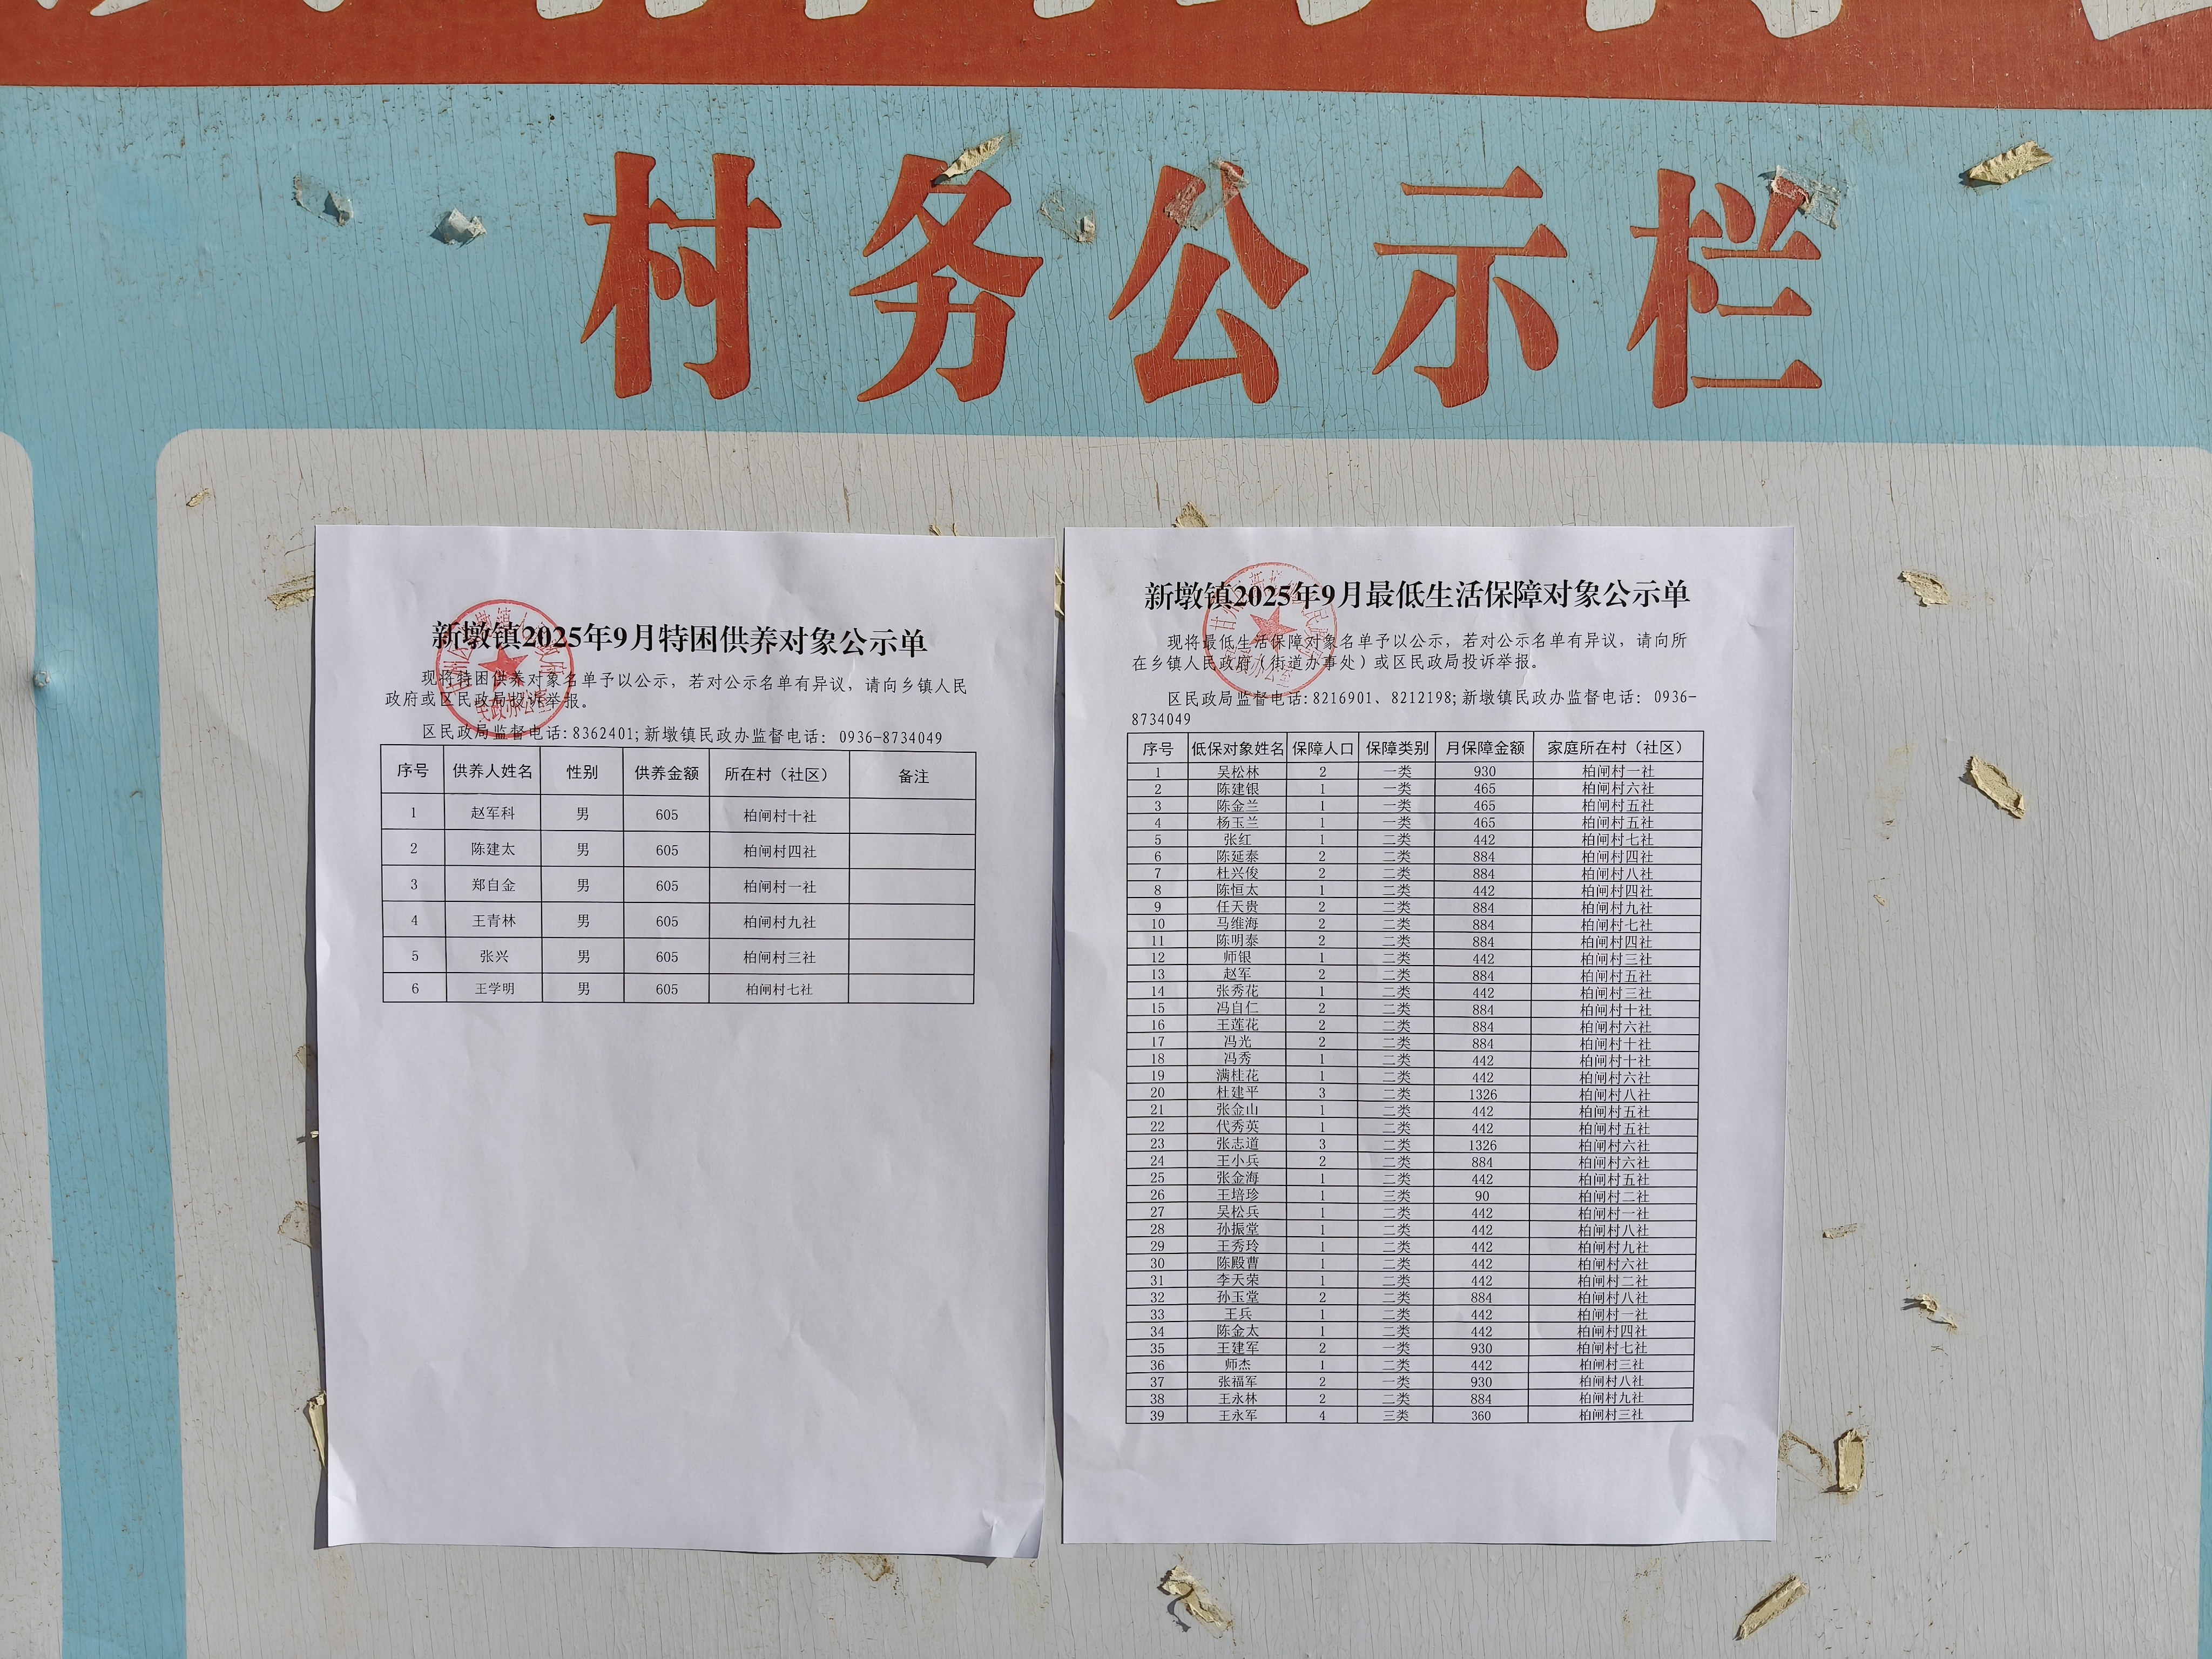 村务公示栏
新墩镇2025年9月特困供养对象公示单
现将特困供养对象名单予以公示，若对公示名单有异议，请向乡镇人民
政府或区民政局投诉举报。
区民政局监督电话:8362401;新墩镇民政办监督电话：0936-8734049
序号 供养人姓名 性别 供养金额 所在村（社区） 备注
1 赵军科 男 605 柏闸村十社
2 陈建太 男 605 柏闸村四社
3 郑自金 男 605 柏闸村一社
4 王青林 男 605 柏闸村九社
5 张兴 男 605 柏闸村三社
6 王学明 男 605 柏闸村七社
民政办公室
新墩镇2025年9月最低生活保障对象公示单
现将最低生活保障对象名单予以公示，若对公示名单有异议，请向所
在乡镇人民政府（街道办事处）或区民政局投诉举报。
区民政局监督电话:8216901、8212198;新墩镇民政办监督电话：0936-
8734049
序号 低保对象姓名 保障人口 保障类别 月保障金额 家庭所在村（社区）
1 吴松林 2 一类 930 柏闸村一社
2 陈建银 1 一类 465 柏闸村六社
3 陈金兰 1 一类 465 柏闸村五社
4 杨玉兰 1 一类 465 柏闸村五社
5 张红 1 二类 442 柏闸村七社
6 陈延泰 2 二类 884 柏闸村四社
7 杜兴俊 2 二类 884 柏闸村八社
8 陈恒太 1 二类 442 柏闸村四社
9 任天贵 2 二类 884 柏闸村九社
10 马维海 2 二类 884 柏闸村七社
11 陈明泰 2 二类 884 柏闸村四社
12 师银 1 二类 442 柏闸村三社
13 赵军 2 二类 884 柏闸村五社
14 张秀花 1 二类 442 柏闸村三社
15 冯自仁 2 二类 884 柏闸村十社
16 王莲花 2 二类 884 柏闸村六社
17 冯光 2 二类 884 柏闸村十社
18 冯秀 1 二类 442 柏闸村十社
19 满桂花 1 二类 442 柏闸村六社
20 杜建平 3 二类 1326 柏闸村八社
21 张金山 1 二类 442 柏闸村五社
22 代秀英 1 二类 442 柏闸村五社
23 张志道 3 二类 1326 柏闸村六社
24 王小兵 2 二类 884 柏闸村六社
25 张金海 1 二类 442 柏闸村五社
26 王培珍 1 三类 90 柏闸村二社
27 吴松兵 1 二类 442 柏闸村一社
28 孙振堂 1 二类 442 柏闸村八社
29 王秀玲 1 二类 442 柏闸村九社
30 陈殿曹 1 二类 442 柏闸村六社
31 李天荣 1 二类 442 柏闸村二社
32 孙玉堂 2 二类 884 柏闸村八社
33 王兵 1 二类 442 柏闸村一社
34 陈金太 1 二类 442 柏闸村四社
35 王建军 2 一类 930 柏闸村七社
36 师杰 1 二类 442 柏闸村三社
37 张福军 2 一类 930 柏闸村八社
38 王永林 2 二类 884 柏闸村九社
39 王永军 4 三类 360 柏闸村三社